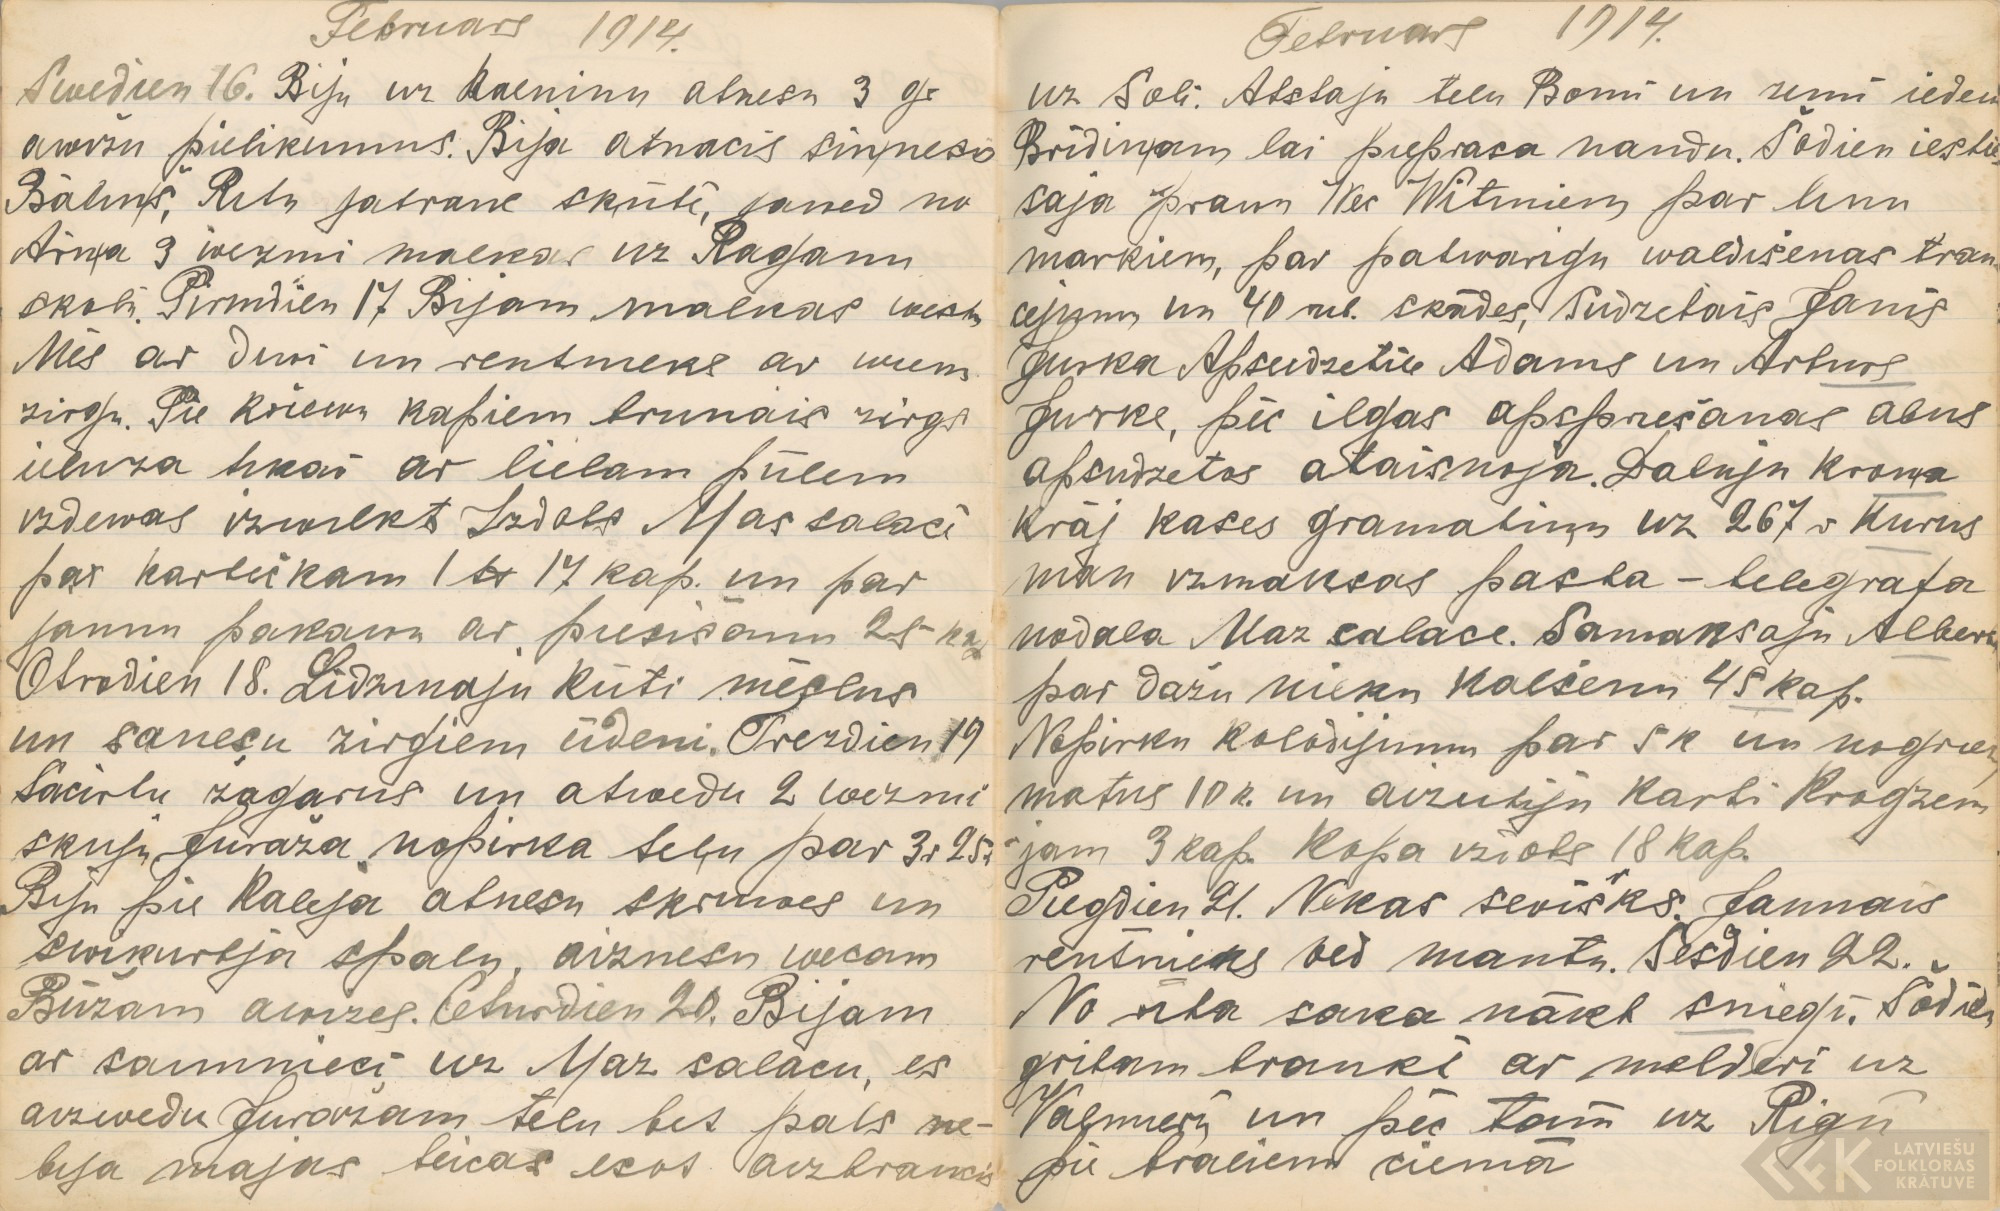 Februars 1914.
Swedien 16. Biju uz Kaeninu atnesu 3 gr
awižu pielikumus. Bija atnacis sinnesis
Baluņš, Rītu jabrauc skūtē, jawed no
Airņa 3 wezmi malkas uz Raganu
skolu. Pirmdien 17 Bijam malkas west
Mēs ar duci un rentnieks ar wienu
zirgu. Pie Kriewu kapiem brunais zirgs
ieluza tikai ar lielam pūlem
izdewas izwilkt Izdots Mas salacē
par kartiškam 1 br 17 kap. un par
jaunu pakawu ar piesišanu 25 kap
Otrodien 18. Lidzinaju Kūti mēslus
un sanesu zirgiem ūdeni. Trezdien 19
Sacirtu žagarus un atwedu 2 wezmi
skuju Juraža nopirka teļu par 3r 25k
Biju pie Kaleja atnesu skruwes un
swikurtja spalu, aiznesu wecam
Būžam awizes. Ceturdien 20. Bijam
ar saimnieci uz Maz salacu, es
aizwedu Juražam teļu bet pats ne-
bija majas teicas esot aizbraucis
Februars 1914.
uz Soli. Atstaju teļu Bomī un zemi iedewu
Brīdiņam lai pieprasa naudu. Šodien iestie
saja praun Wec Witiņiem par linu
markiem, par patwarigu waldišenas tran
cejumu un 40 rub. skādes, Sudzetais Janis
Jurka Apsudzetie Adams un Arturs
Jurke, pēc ilgas apspriešanas abus
apsudzetos ataisnoja. Dabuju kroņa
krāj kases gramatiņu uz 267 r kurus
man izmaksas pasta - telegrafa
nodala Maz salacē. Samaksaju Albertam
par dažu nieku kalšenu 45 kap.
Nopirku kolodijumu par 5 k un nogriezu
matus 10 k. un aizsutiju karti Krogzem
jam 3 kap. Kopa izdots 18 kap.
Piegdien 21. Nekas sewišķs. Jaunais
rentnieks wed mantu. Sesdien 22.
No rīta saka nākt sniegs. Šodien
gribam braukt ar melderi uz
Valmieru un pēc tam uz Rigu
pie braliem ciemā
LATVIEŠU
FOLKLORAS
KRĀTUVE